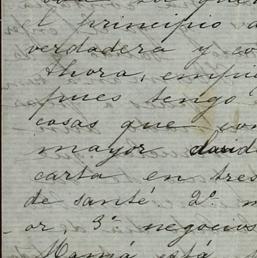 principio a
verdadera y co
thora, empu
pues tengo
cosas que con
mayor
carta en tres
de santé 2° m
or, 3° negocios
Mamá está